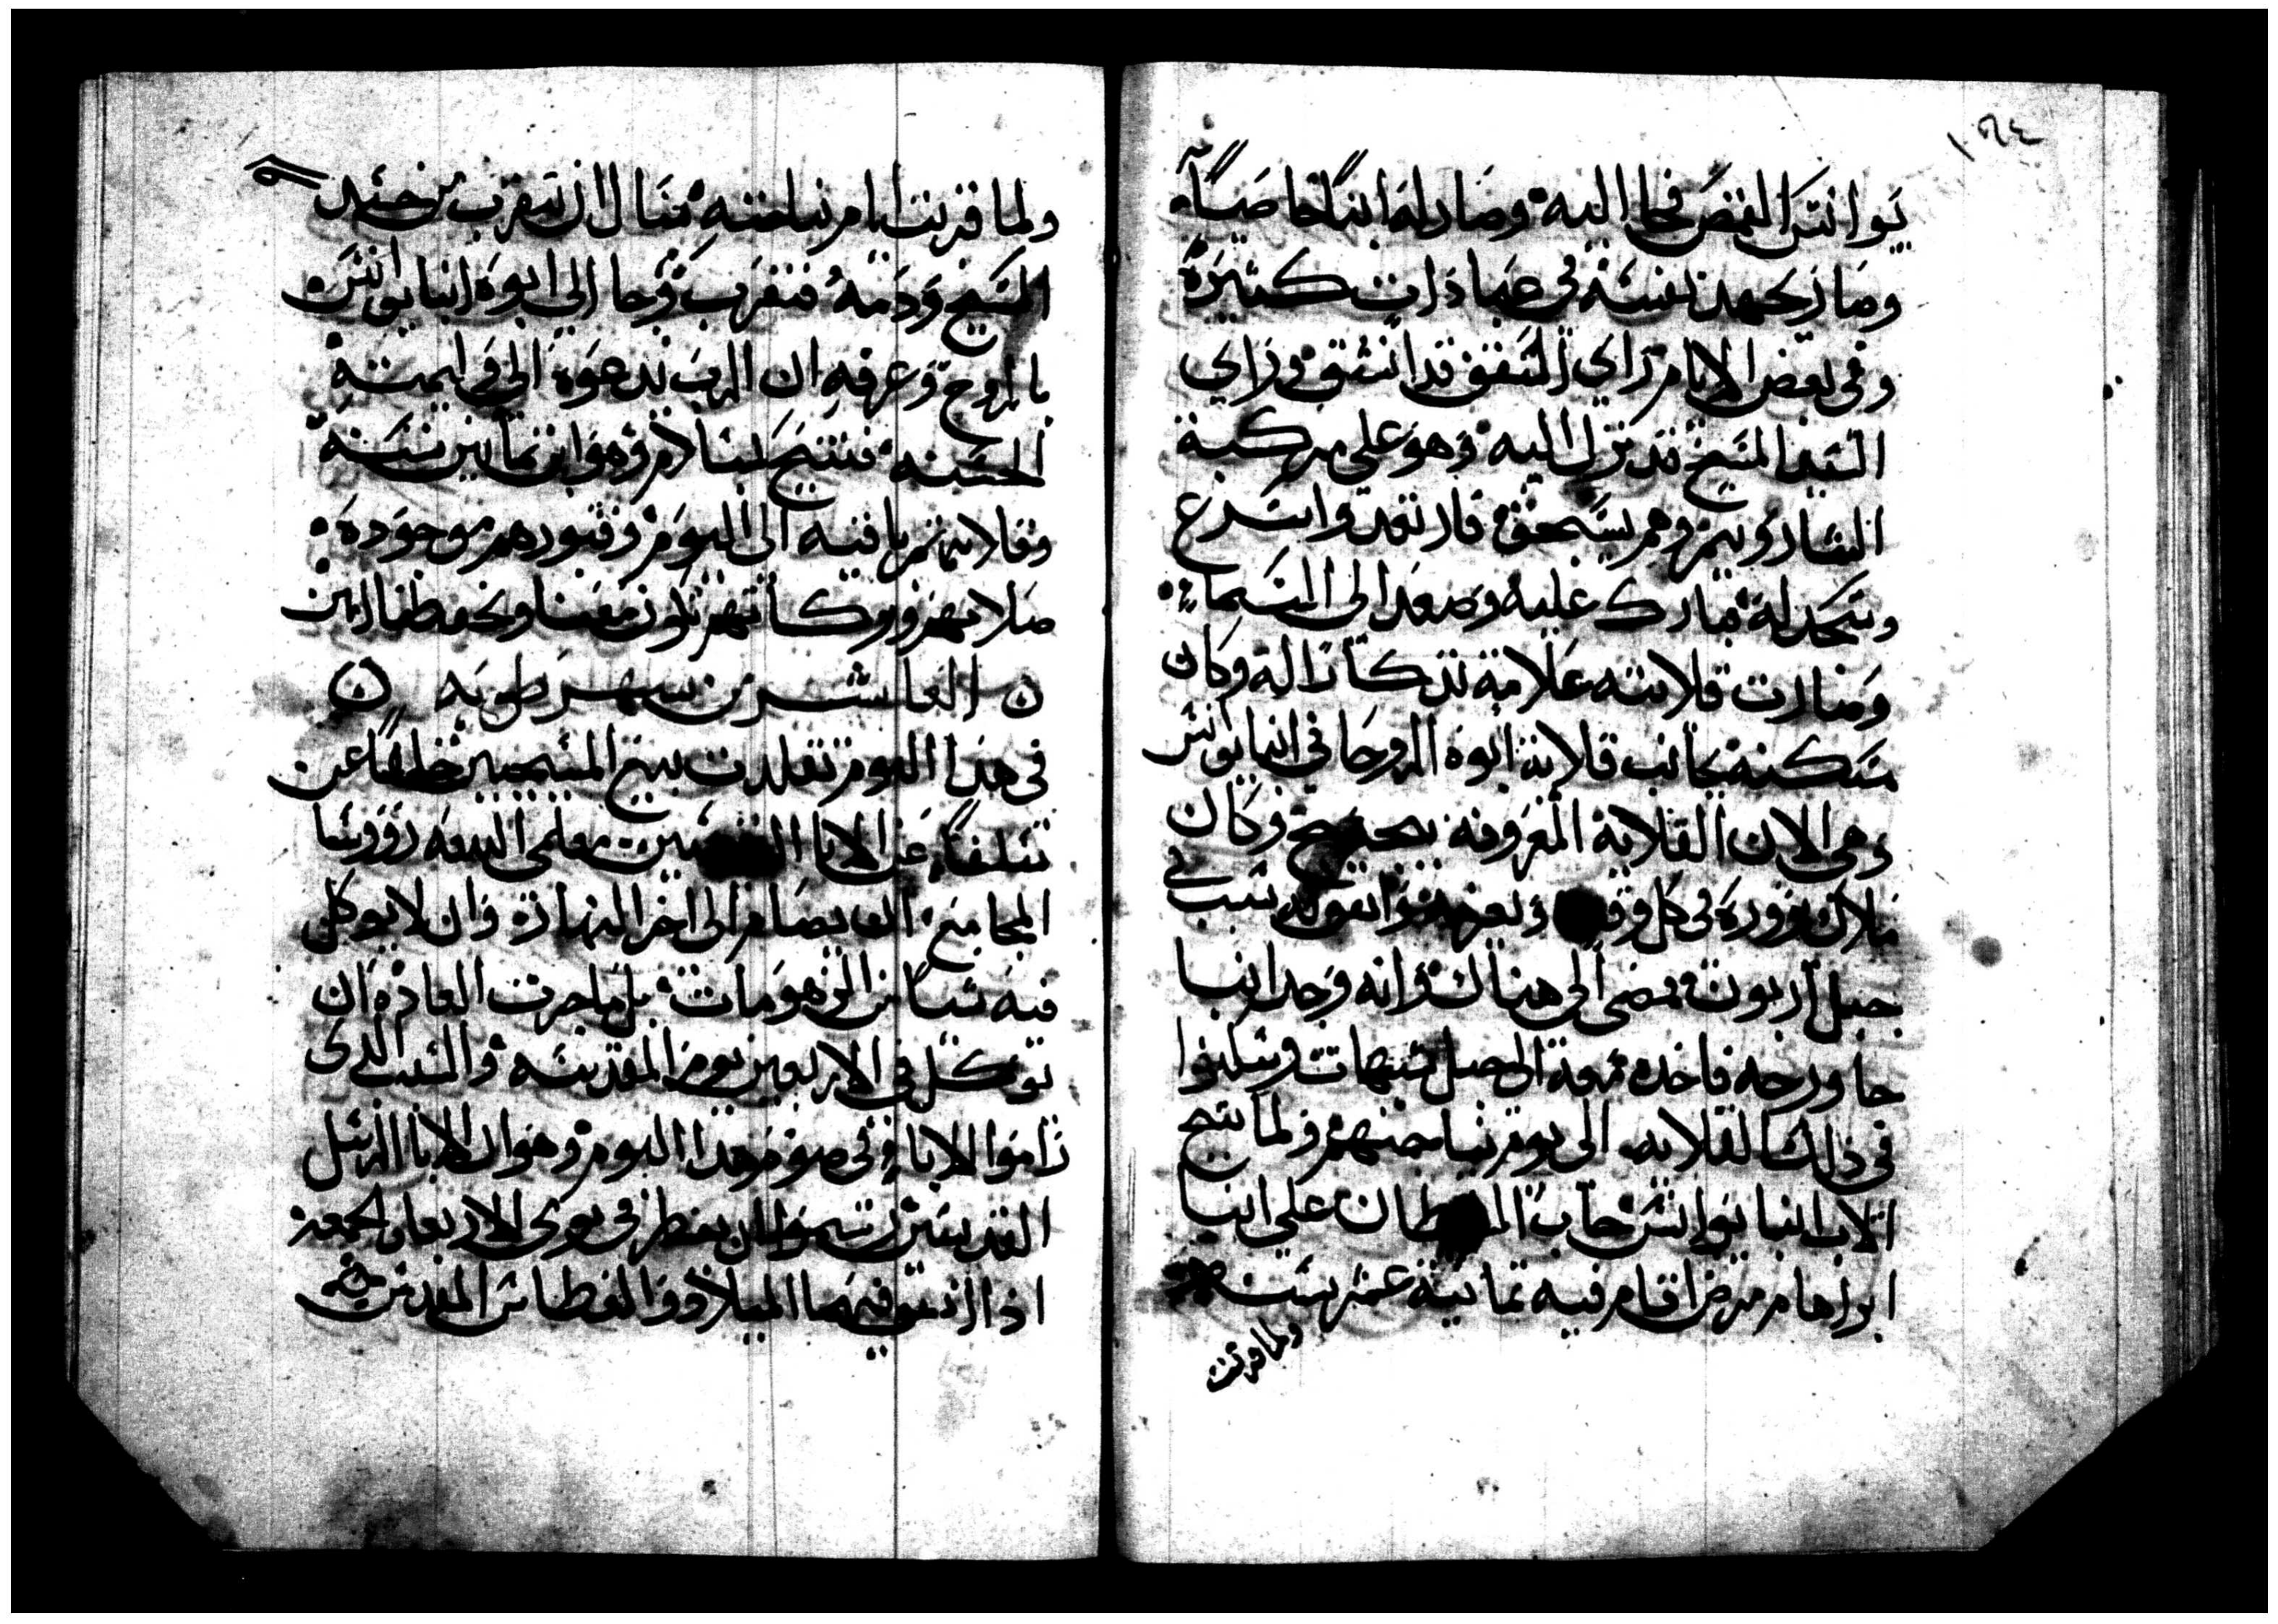 ١٦٤
يوانس القمص فجا اليه وصار له ابنًا خاصيًا
وصار يجهد نفسه في عبادات كثيرة
وفي بعض الايام راي السقف قد انشق وراي
السيد المسيح قد نزل اليه وهو علي مركبة
الشاروبيم وهم يسبحون فارتعد واسرع
وسجد له فبارك عليه وصعد الي السماء
وصارت قلايته علامة تذكارًا له وكان
مسكنه بجانب قلاية ابوه الروحاني انبا يوانس
وهي الان القلاية المعروفة وكان
ملاك يزوره في كل وقت ويعزيه
جبل اريون فمضي الي هناك وانه وجد انبا
جاورجه فاخده معه الي جبل شيهات وسكنوا
في ذلك القلايه الي يوم نياحتهم ولما تنيح
الاب انبا يوانس جاب علي انبا
ابراهام مرض اقام فيه ثمانية عشر سنه
ولما قربت
ولما قربت ايام نياحته سال ان يتقرب من جسد
المسيح ودمه فتقرب وجا الي ابوه انبا يوانس
بالروح وعرفه ان الرب يدعوه الي وليمته
الحسنه فتنيح بسلام وهو ابن ثمانين سنة
وقلايتهم باقيه الي اليوم وقبورهم موجوده
صلاتهم وبركاتهم تكون معنا وتحفظنا امين
العاشر من شهر طوبه
في هذا اليوم تقلدت بيع المسيحيين خلفًا عن
سلفًا عن الابا القديسين معلمي البيعه رووسا
المجامع ان يصام الي اخر النهار وان لا يوكل
فيه شيا من الزهومات بل ما جرت العاده ان
يوكل في الاربعين يوم المقدسه والسبب الدي
راموا الابا في صوم هدا اليوم وهو ان الابا الرسل
القديسين رسموا ان يفطر في يومي الاربعا والجمعة
اذا اتفق فيهما الميلاد والغطاس المقدس